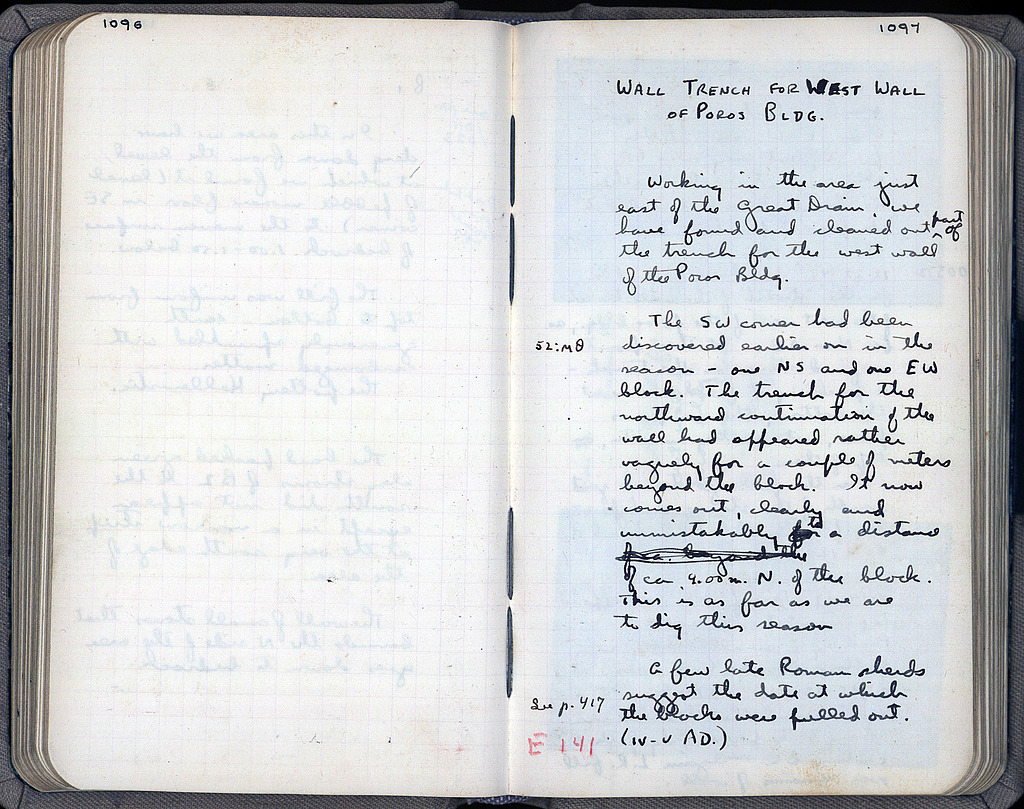 1096
1097
WALL TRENCH FOR WEST WALL
OF POROS BLDG.
Working in the area just
east of the Great Drain, we
have found and cleaned out part of
the trench for the west wall
of the Poros Bldg.
The SW corner had been
52:MΘ
discovered earlier on in the
season - one NS and one EW
block. The trench for the
northward continuation of the
wall had appeared rather
vaguely for a couple of meters
beyond the block. It now
comes out, clearly and
unmistakably to a distance
of ca. 9.00 m. N. of the block.
This is as far as we are
to dig this season
A few late Roman sherds
suggest the date at which
See p. 417
the blocks were pulled out.
(IV-V AD.)
E 141